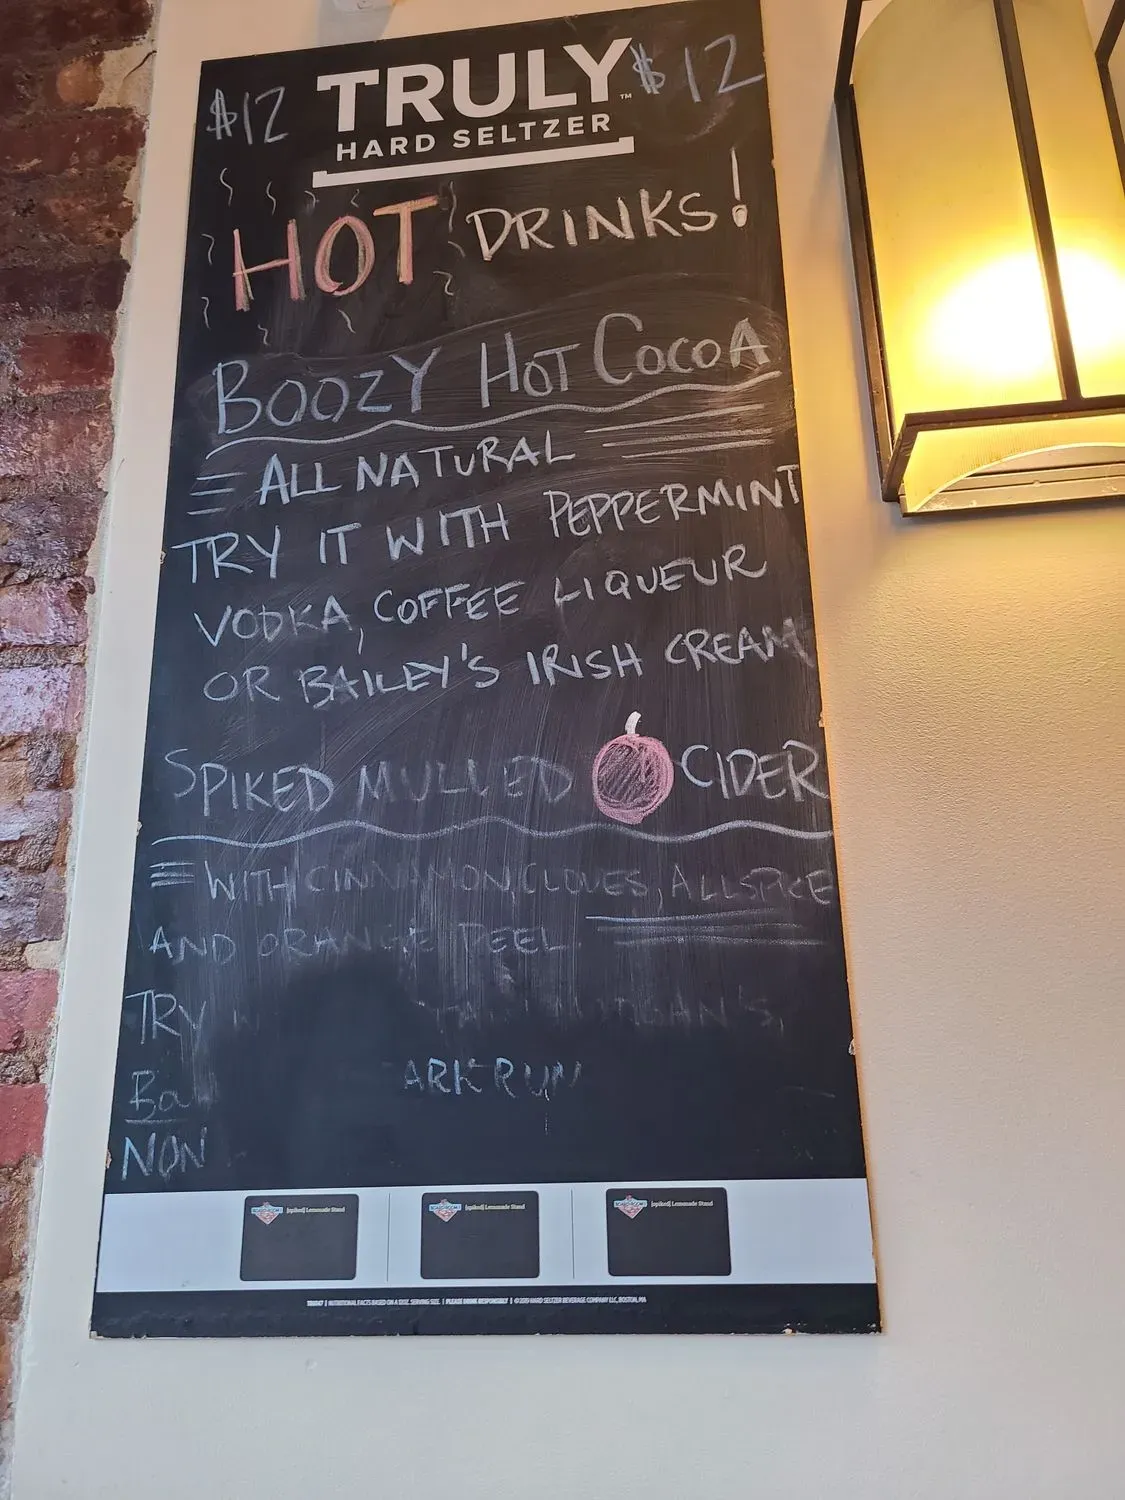 $12 TRULY™ $12
HARD SELTZER
HOT DRINKS!
BOOZY HOT COCOA
ALL NATURAL
TRY IT WITH PEPPERMINT
VODKA, COFFEE LIQUEUR
OR BAILEY'S IRISH CREAM
SPIKED MULLED CIDER
WITH CINNAMON, CLOVES, ALLSPICE
AND ORANGE PEEL
TRY
Ba ARK RUM
NON
[spiked] Lemonade Stand [spiked] Lemonade Stand [spiked] Lemonade Stand
NUTRITIONAL FACTS BASED ON A 12OZ. SERVING SIZE. | PLEASE DRINK RESPONSIBLY | © 2019 HARD SELTZER BEVERAGE COMPANY LLC, BOSTON, MA